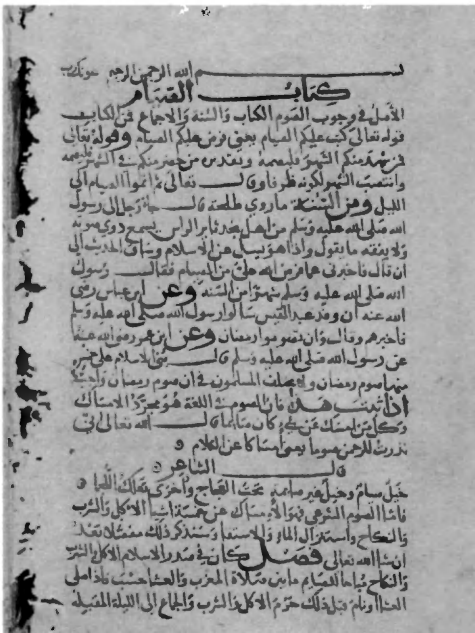 بسم الله الرحمن الرحيم عونك يا رب
كتاب الصيام
الأصل في وجوب الصوم الكتاب والسنة والاجماع فمن الكتاب
قوله تعالى كتب عليكم الصيام يعني فرض عليكم الصيام وقوله تعالى
فمن شهد منكم الشهر فليصمه وتقديره من حضر منكم في الشهر فليصمه
وانتصب الشهر لكونه ظرفا وقال تعالى ثم اتموا الصيام الى
الليل ومن السنة ما روي طلحة قال جاء رجل إلى رسول
الله صلى الله عليه وسلم من اهل نجد ثاير الراس يسمع دوي صوته
ولا يفقه ما يقول واذا هو يسل عن الاسلام وساق الحديث الى
ان قال فاخبرني عما فرض الله علي من الصيام فقال رسول
الله صلى الله عليه وسلم شهرا من السنة وعن ابن عباس رضي
الله عنه ان وفد عبد القيس سالوا رسول الله صلى الله عليه وسلم
فاخبرهم وقال وان تصوموا رمضان وعن ابن عمر رضي الله عنه
عن رسول الله صلى الله عليه وسلم قال بني الاسلام على خمس
منها صوم رمضان ولا يختلف المسلمون في ان صوم رمضان واجب
اذا ثبت هذا فان الصوم في اللغة هو مجرد الامساك
وكل من امسك عن شيء كان صائما قال الله تعالى اني
نذرت للرحمن صوما يعني امساكا عن الكلام
قال الشاعر
خيل صيام وخيل غير صائمة تحت العجاج واخرى تعلك اللجما
فاما الصوم الشرعي فهو الامساك عن خمسة اشيا الاكل والشرب
والنكاح واستنزال الماء والاستقا وسنذكر ذلك مفصلا بعد
ان شا الله تعالى فصل كان في صدر الاسلام الاكل والشرب
والنكاح مباحا للصيام ما بين صلاة المغرب والعشا حسب فاذا صلى
العشا او نام قبل ذلك حرم الاكل والشرب والجماع الى الليلة المقبلة